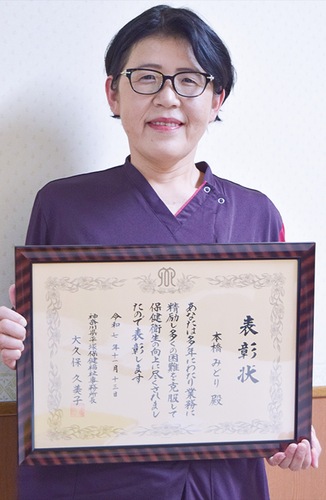 表彰状
本橋みどり 殿
あなたは多年にわたり業務に
精励し多くの困難を克服して
保健衛生の向上に尽くされまし
たので表彰します
令和七年十一月十三日
神奈川県平塚保健福祉事務所長
大久保 久美子